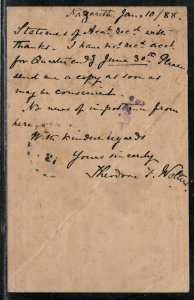 Nazareth Jan. 10/88.
Statement of Acct. rec'd. with
thanks. I have not rec'd. acct
for Quarter end'g June 30th. Please
send me a copy as soon as
may be convenient.
No news of importance from
here.
With kindest regards
Yours sincerely
Theodore F. Wolle